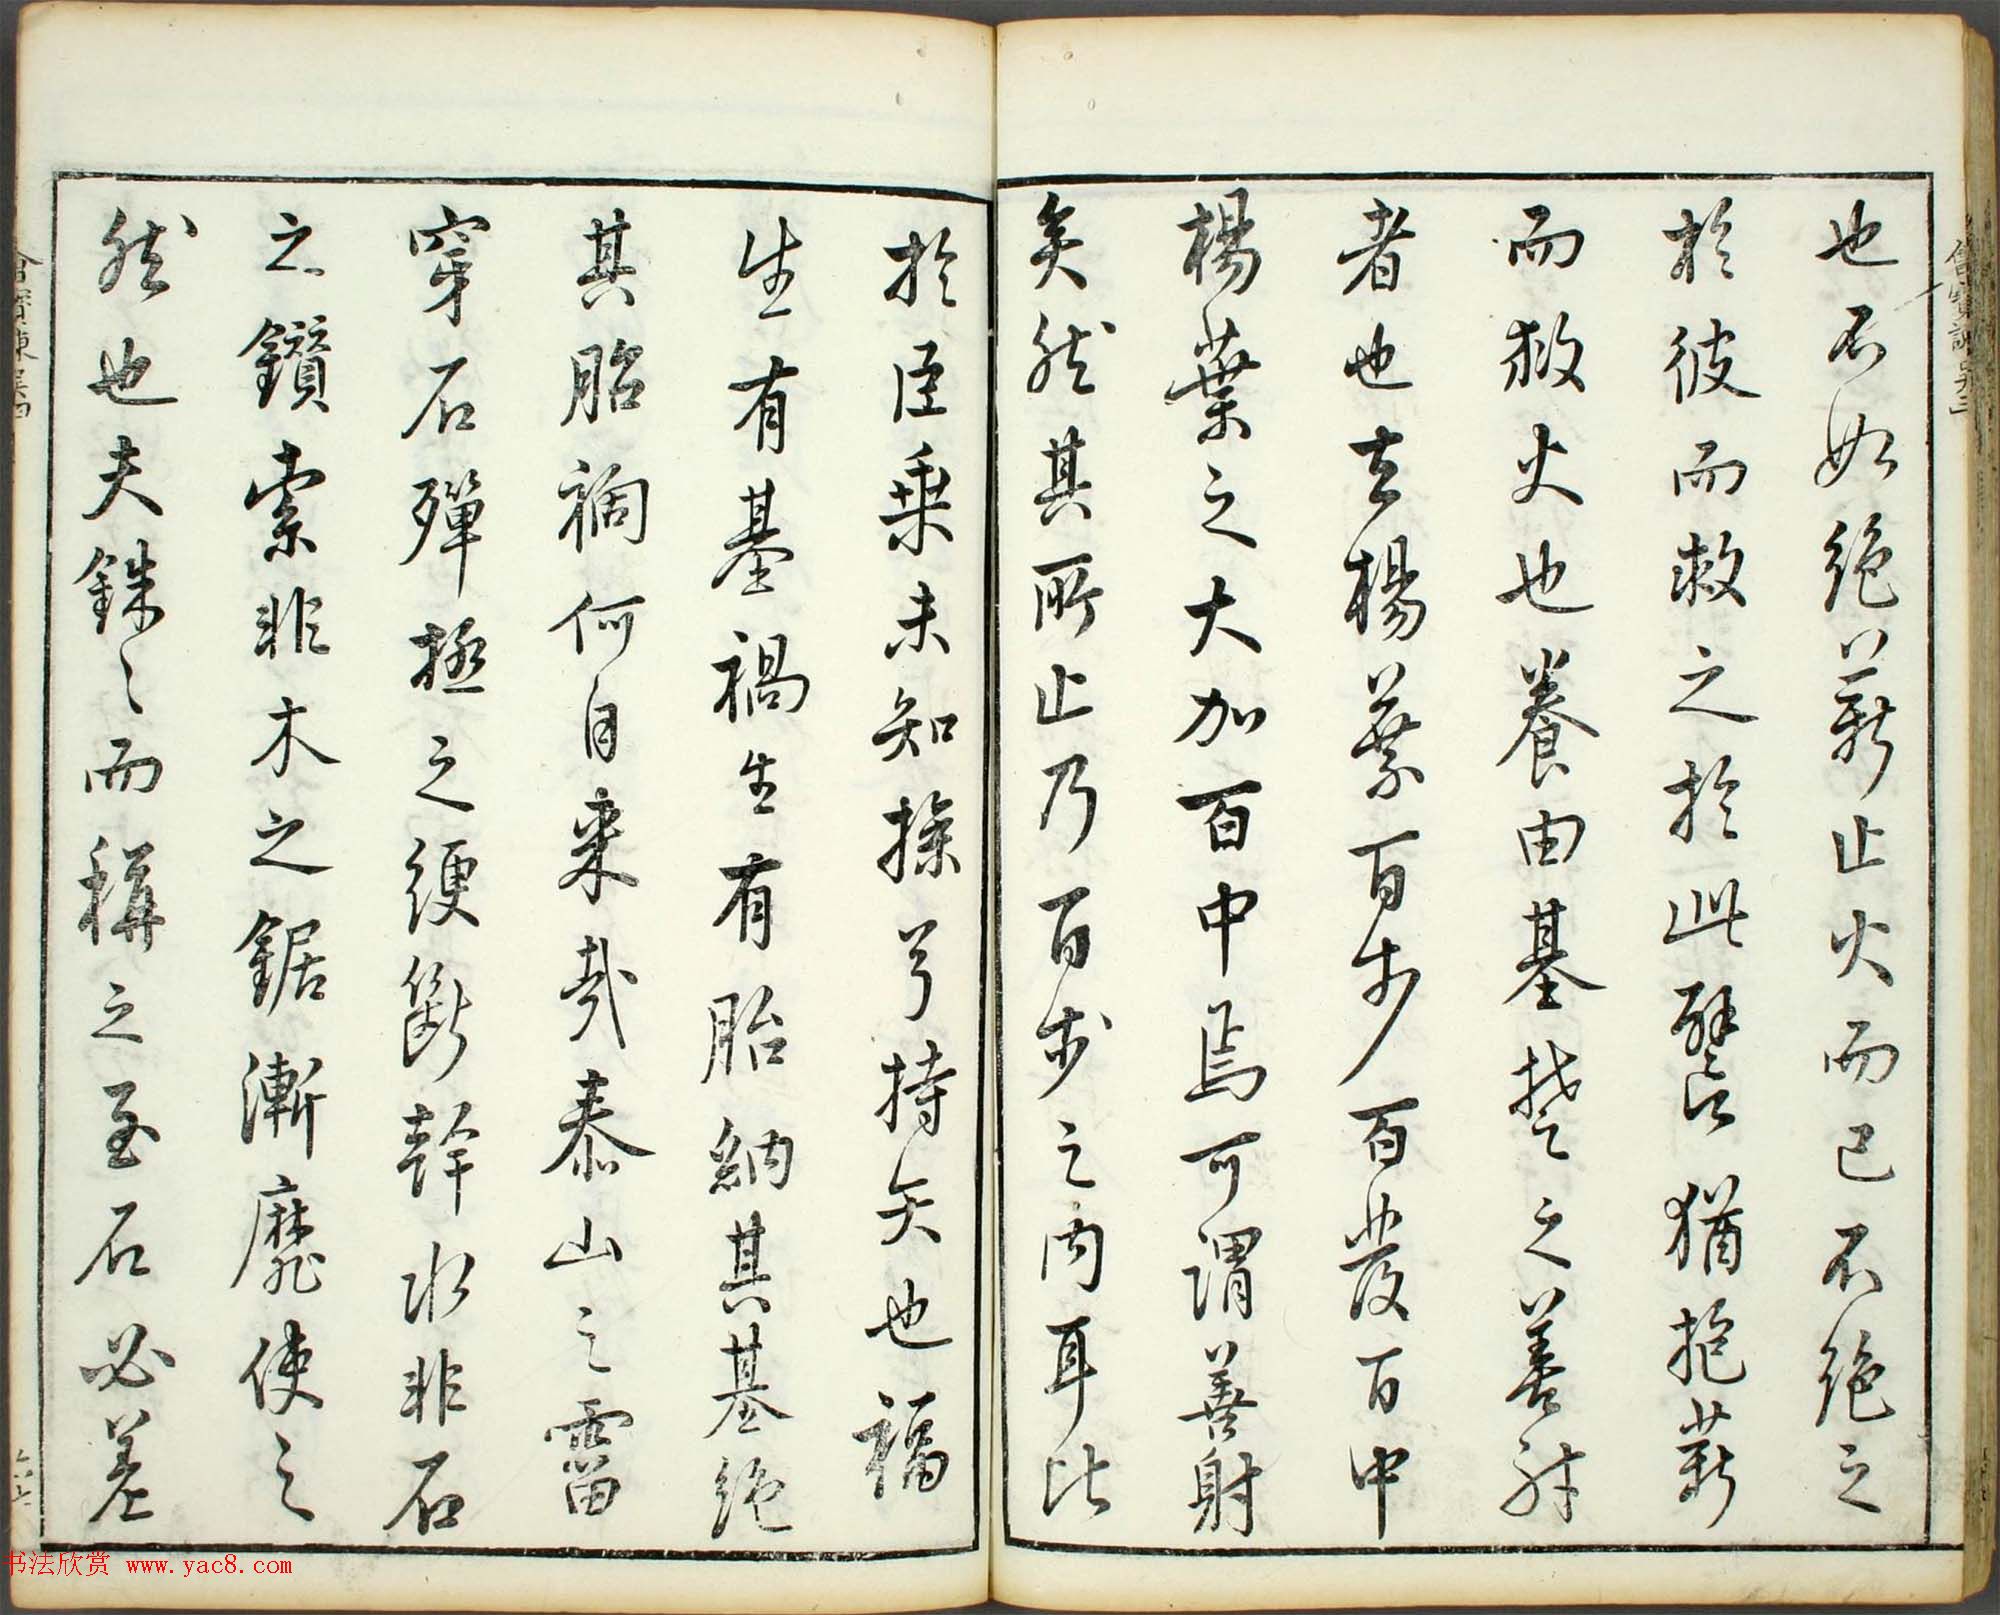 也不如絶薪止火而已不絶之
於彼而救之於此譬猶抱薪
而救火也養由基楚之善射
者也去楊葉百步百發百中
楊葉之大加百中焉可謂善射
矣然其所止乃百步之内耳比
於臣乗未知操弓持矢也福
生有基禍生有胎納其基絶
其胎禍何自来哉泰山之霤
穿石殫極之綆斷幹水非石
之鑚索非木之鋸漸靡使之
然也夫銖之而稱之至石必差
书法欣赏 www.yac8.com